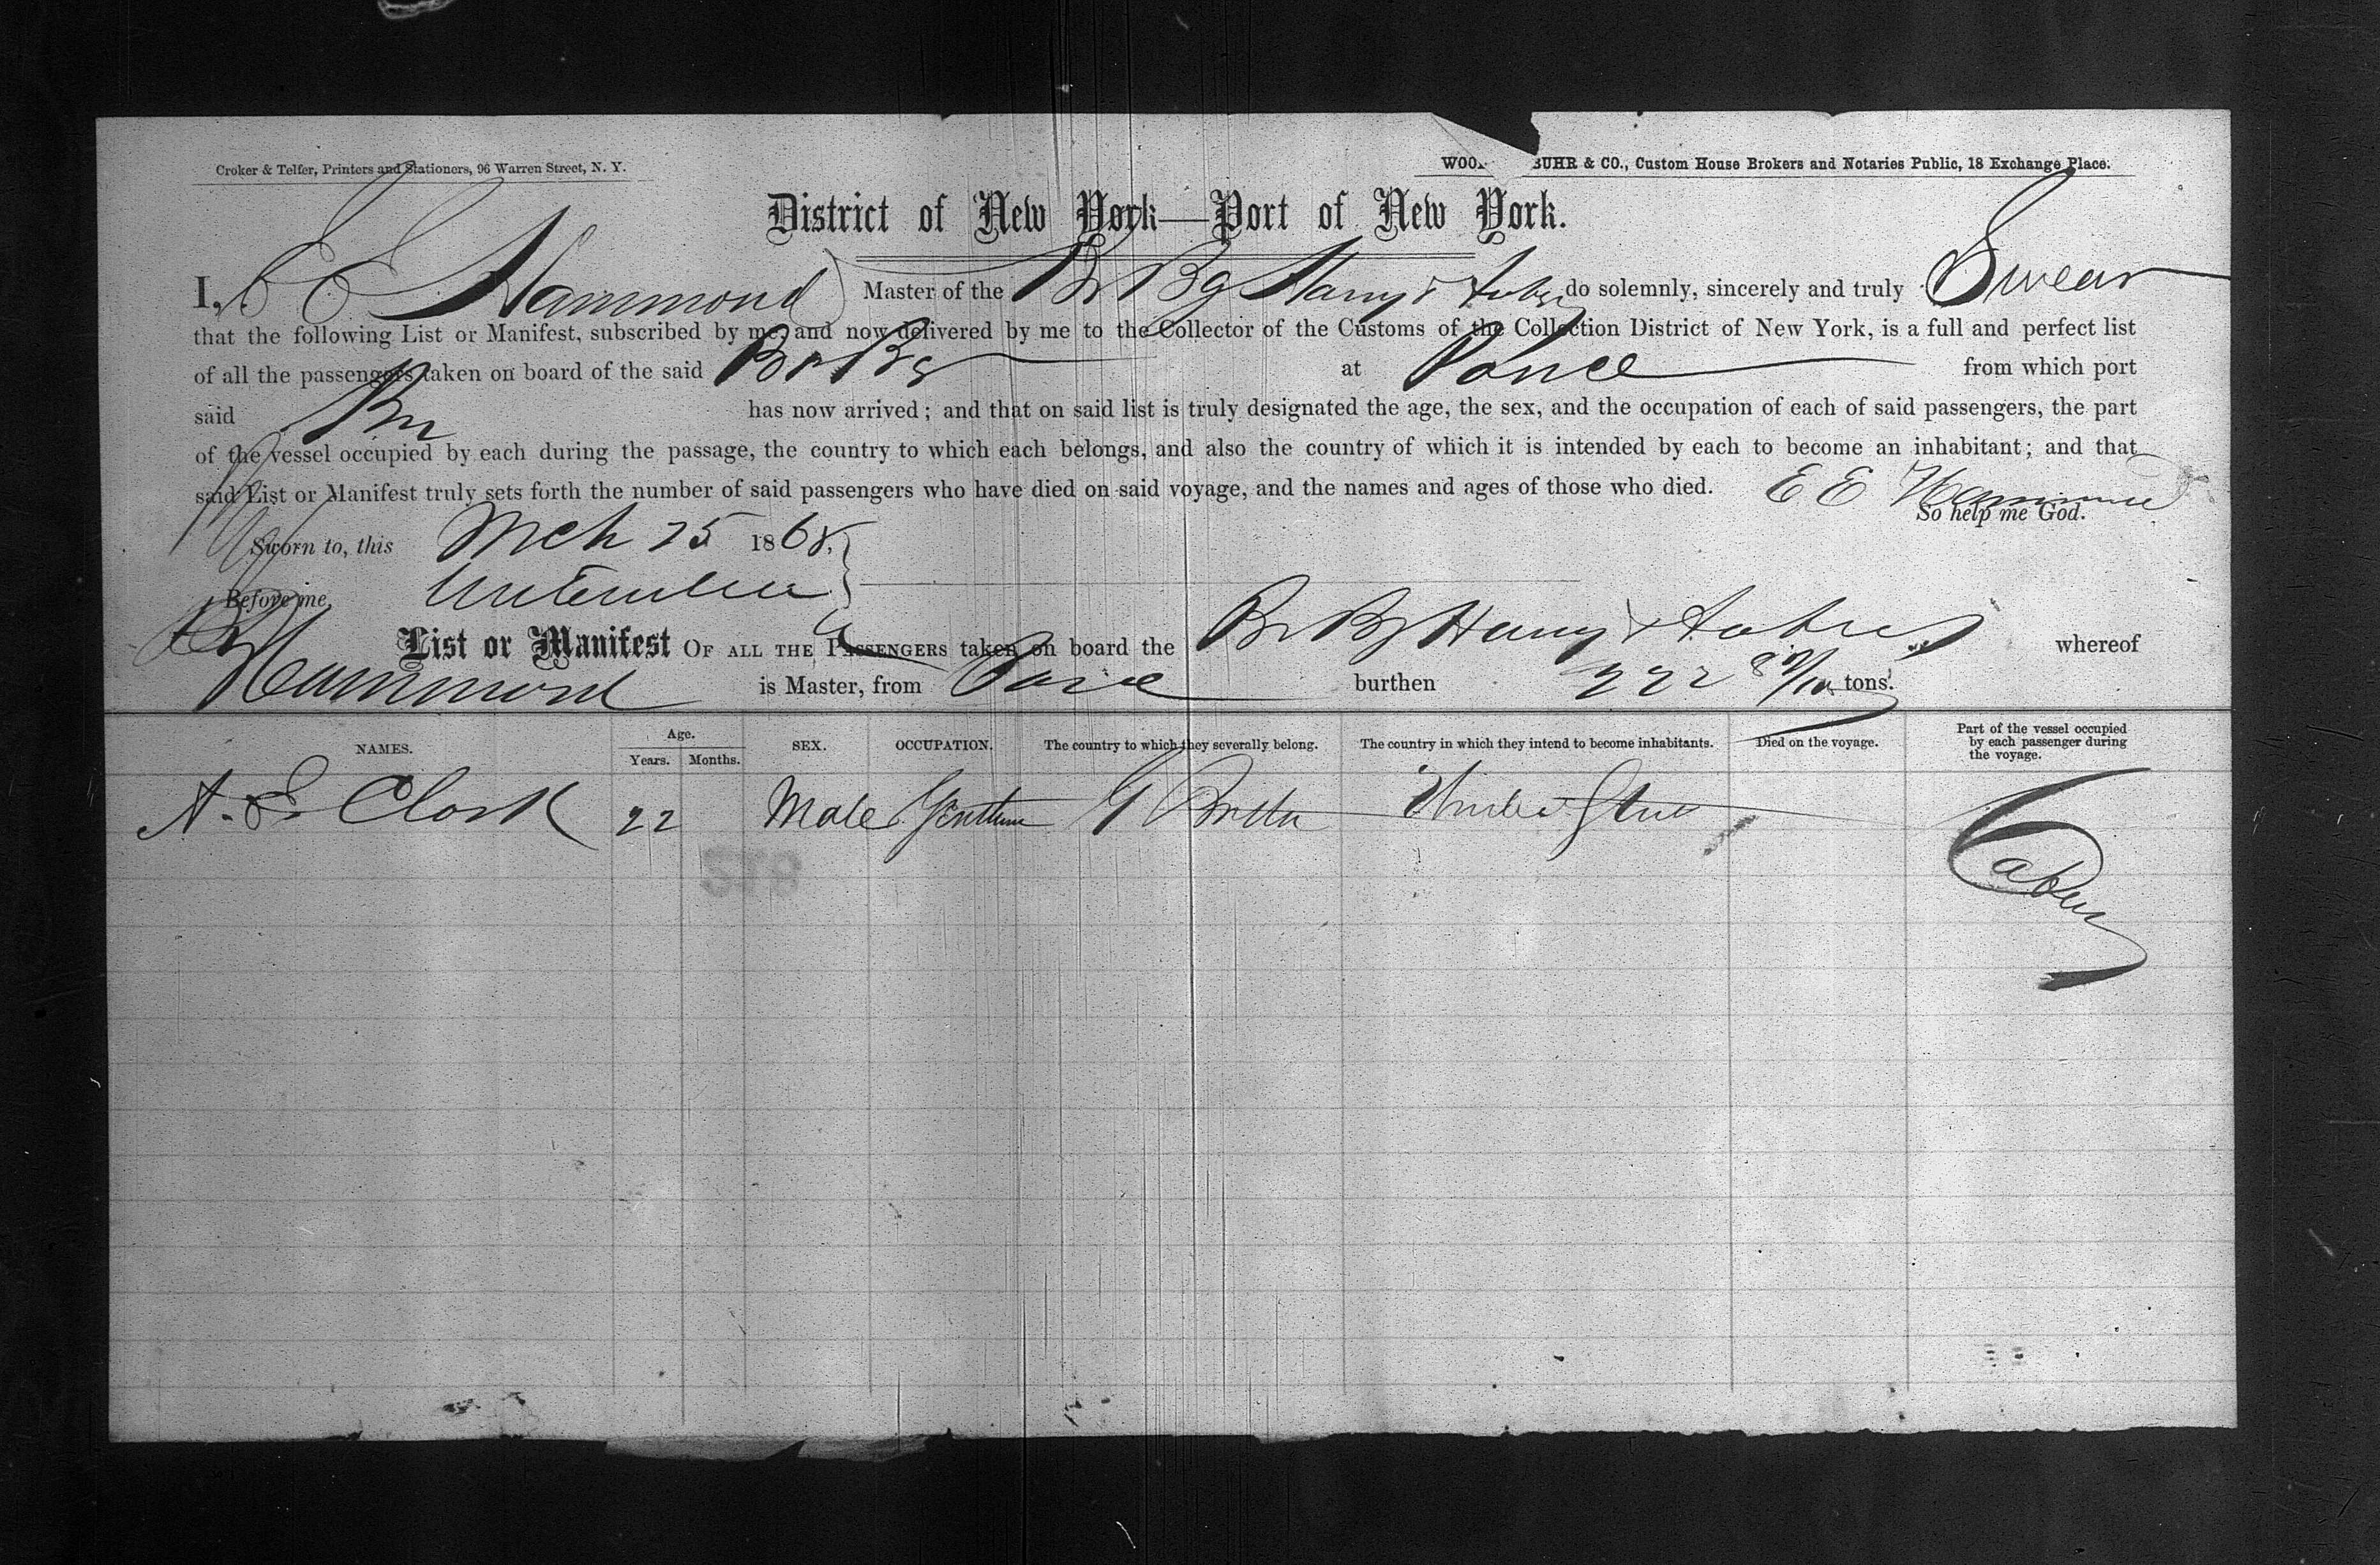 Croker & Telfer, Printers and Stationers, 96 Warren Street, N. Y.
BUHR & CO., Custom House Brokers and Notaries Public, 18 Exchange Place.
District of New York—Port of New York.
I, E E Hammond Master of the Br Bg Harry & do solemnly, sincerely and truly Swear
that the following List or Manifest, subscribed by me, and now delivered by me to the Collector of the Customs of the Collection District of New York, is a full and perfect list
of all the passengers taken on board of the said Br Bg at Ponce from which port
said Br has now arrived; and that on said list is truly designated the age, the sex, and the occupation of each of said passengers, the part
of the vessel occupied by each during the passage, the country to which each belongs, and also the country of which it is intended by each to become an inhabitant; and that
said List or Manifest truly sets forth the number of said passengers who have died on said voyage, and the names and ages of those who died. E E Hammond
So help me God.
Sworn to, this Mch 25 1868.
Before me,
List or Manifest OF ALL THE PASSENGERS taken on board the Br Bg Harry & whereof
Hammond is Master, from Ponce burthen 222 tons.
NAMES. Age. Years. Months. SEX. OCCUPATION. The country to which they severally belong. The country in which they intend to become inhabitants. Died on the voyage. Part of the vessel occupied by each passenger during the voyage.
A. E Clark 22 Male Gentlm G Britn United States Cabin